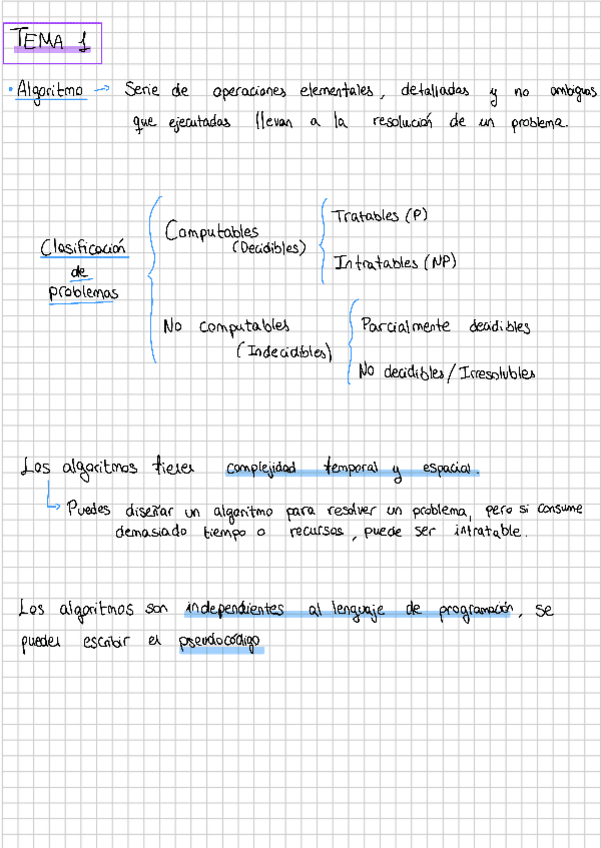 TEMA 1
• Algoritmo → Serie de operaciones elementales, detalladas y no ambiguas
que ejecutadas llevan a la resolución de un problema.
Clasificación
de
problemas
Computables
(Decidibles)
Tratables (P)
Intratables (NP)
No computables
(Indecidibles)
Parcialmente decidibles
No decidibles / Irresolubles
Los algoritmos tienen complejidad temporal y espacial.
Puedes diseñar un algoritmo para resolver un problema, pero si consume
demasiado tiempo o recursos, puede ser intratable.
Los algoritmos son independientes al lenguaje de programación, se
pueden escribir en pseudocódigo